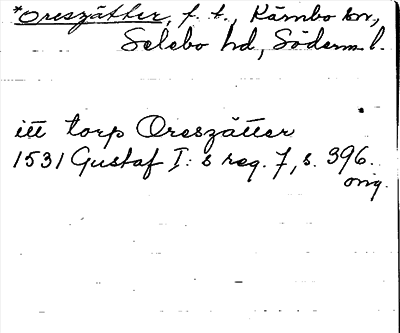 *Oreszätter, f. t., Kärnbo sn,
Selebo hd, Söderm. l.
itt torp Oreszätter
1531 Gustaf I:s reg. 7, s. 396.
orig.